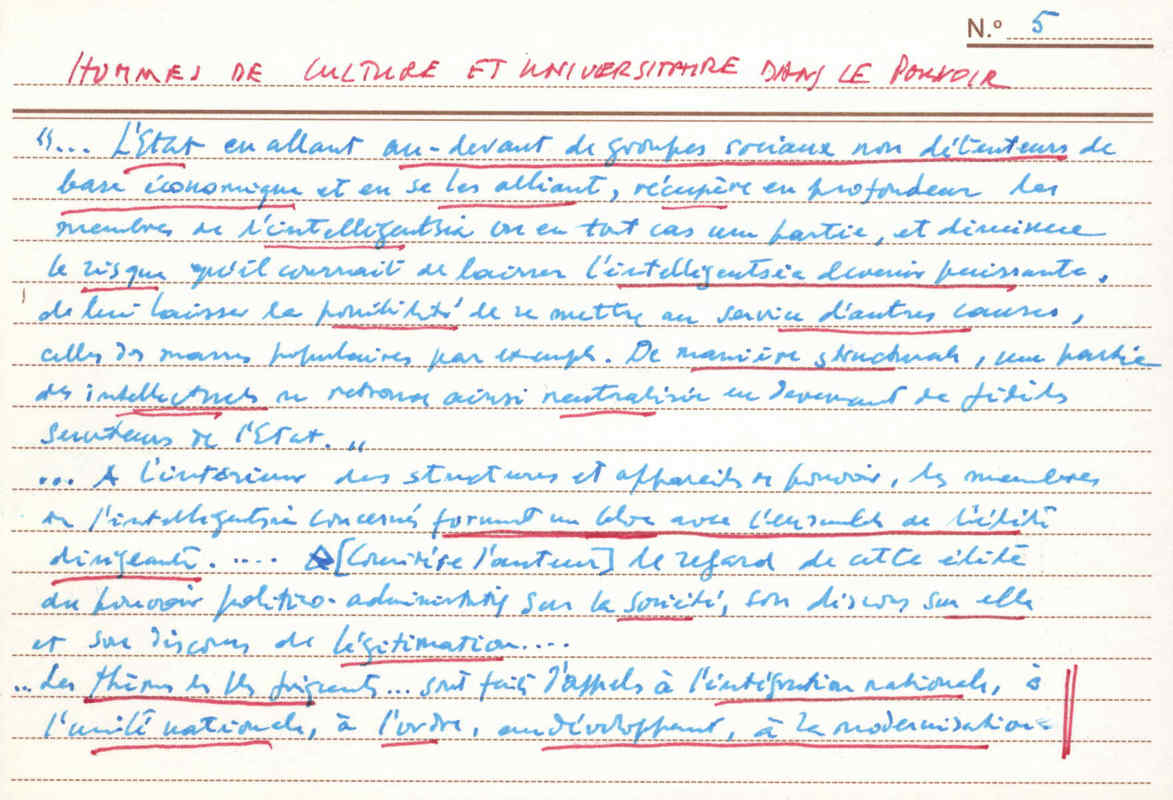 N.º 5
HOMMES DE CULTURE ET UNIVERSITAIRE DANS LE POUVOIR
“... L'Etat en allant au-devant de groupes sociaux non détenteurs de
base économique et en se les alliant, récupère en profondeur les
membres de l'intelligentsia ou en tout cas une partie, et diminue
le risque qu'il courrait de laisser l'intelligentsia devenir puissante,
de lui laisser la possibilité de se mettre au service d'autres causes,
celles des masses populaires par exemple. De manière structurale, une partie
des intellectuels se retrouve ainsi neutralisée en devenant de fidèles
serviteurs de l'Etat. „
... A l'intérieur des structures et appareils de pouvoir, les membres
de l'intelligentsia concernés forment un bloc avec l'ensemble de l'élite
dirigeante. .... [l'auteur] le regard de cette élite
du pouvoir politico-administratif sur la société, son discours sur elle
et son discours de légitimation....
.. Les thèmes les plus fréquents... sont faits d'appels à l'intégration nationale, à
l'unité nationale, à l'ordre, au développement, à la modernisation.